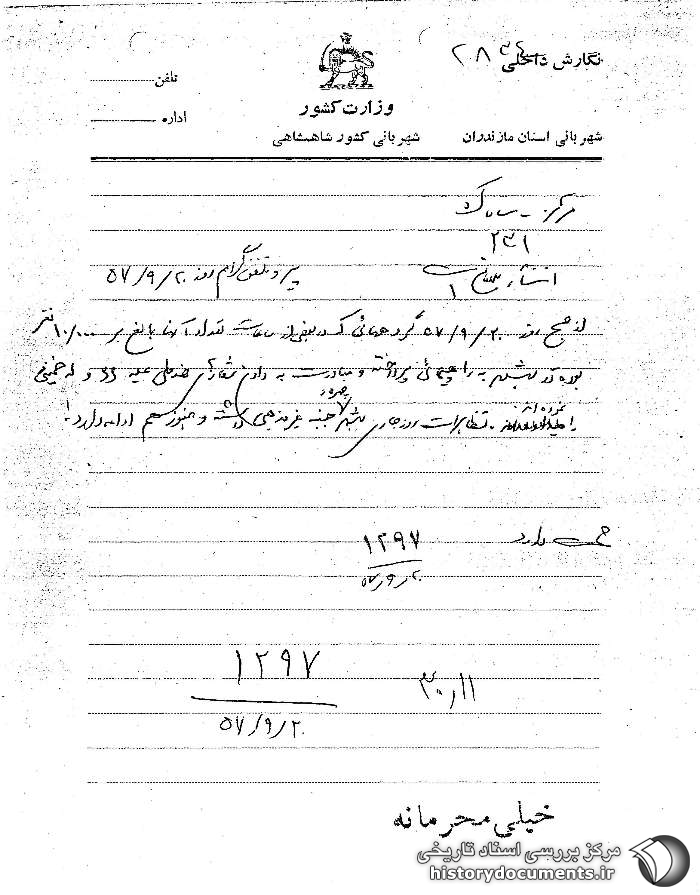 نگارش داخلی ۲۸۳۴
تلفن
وزارت کشور
اداره
شهربانی استان مازندران
شهربانی کشور شاهنشاهی
مرکز - ساواک
۲۳۱
پیرو تلفنگرام روز ۵۷/۹/۲۰
از صبح روز ۵۷/۹/۲۰ گروههائی که در بعضی از ساعات تعداد آنها بالغ بر ۱۰/۰۰۰ نفر
بوده در شهر به راهپیمائی پرداخته و مبادرت به دادن شعارهای ضد ملی علیه و له خمینی
نموده اند
تظاهرات روز جاری شهر جنبه غیر مذهبی داشته و هنوز هم ادامه دارد
دارد
۱۲۹۷
۵۷/۹/۲۰
۱۲۹۷
۱۱/۳۰
۵۷/۹/۲۰
خیلی محرمانه
مرکز بررسی اسناد تاریخی
historydocuments.ir